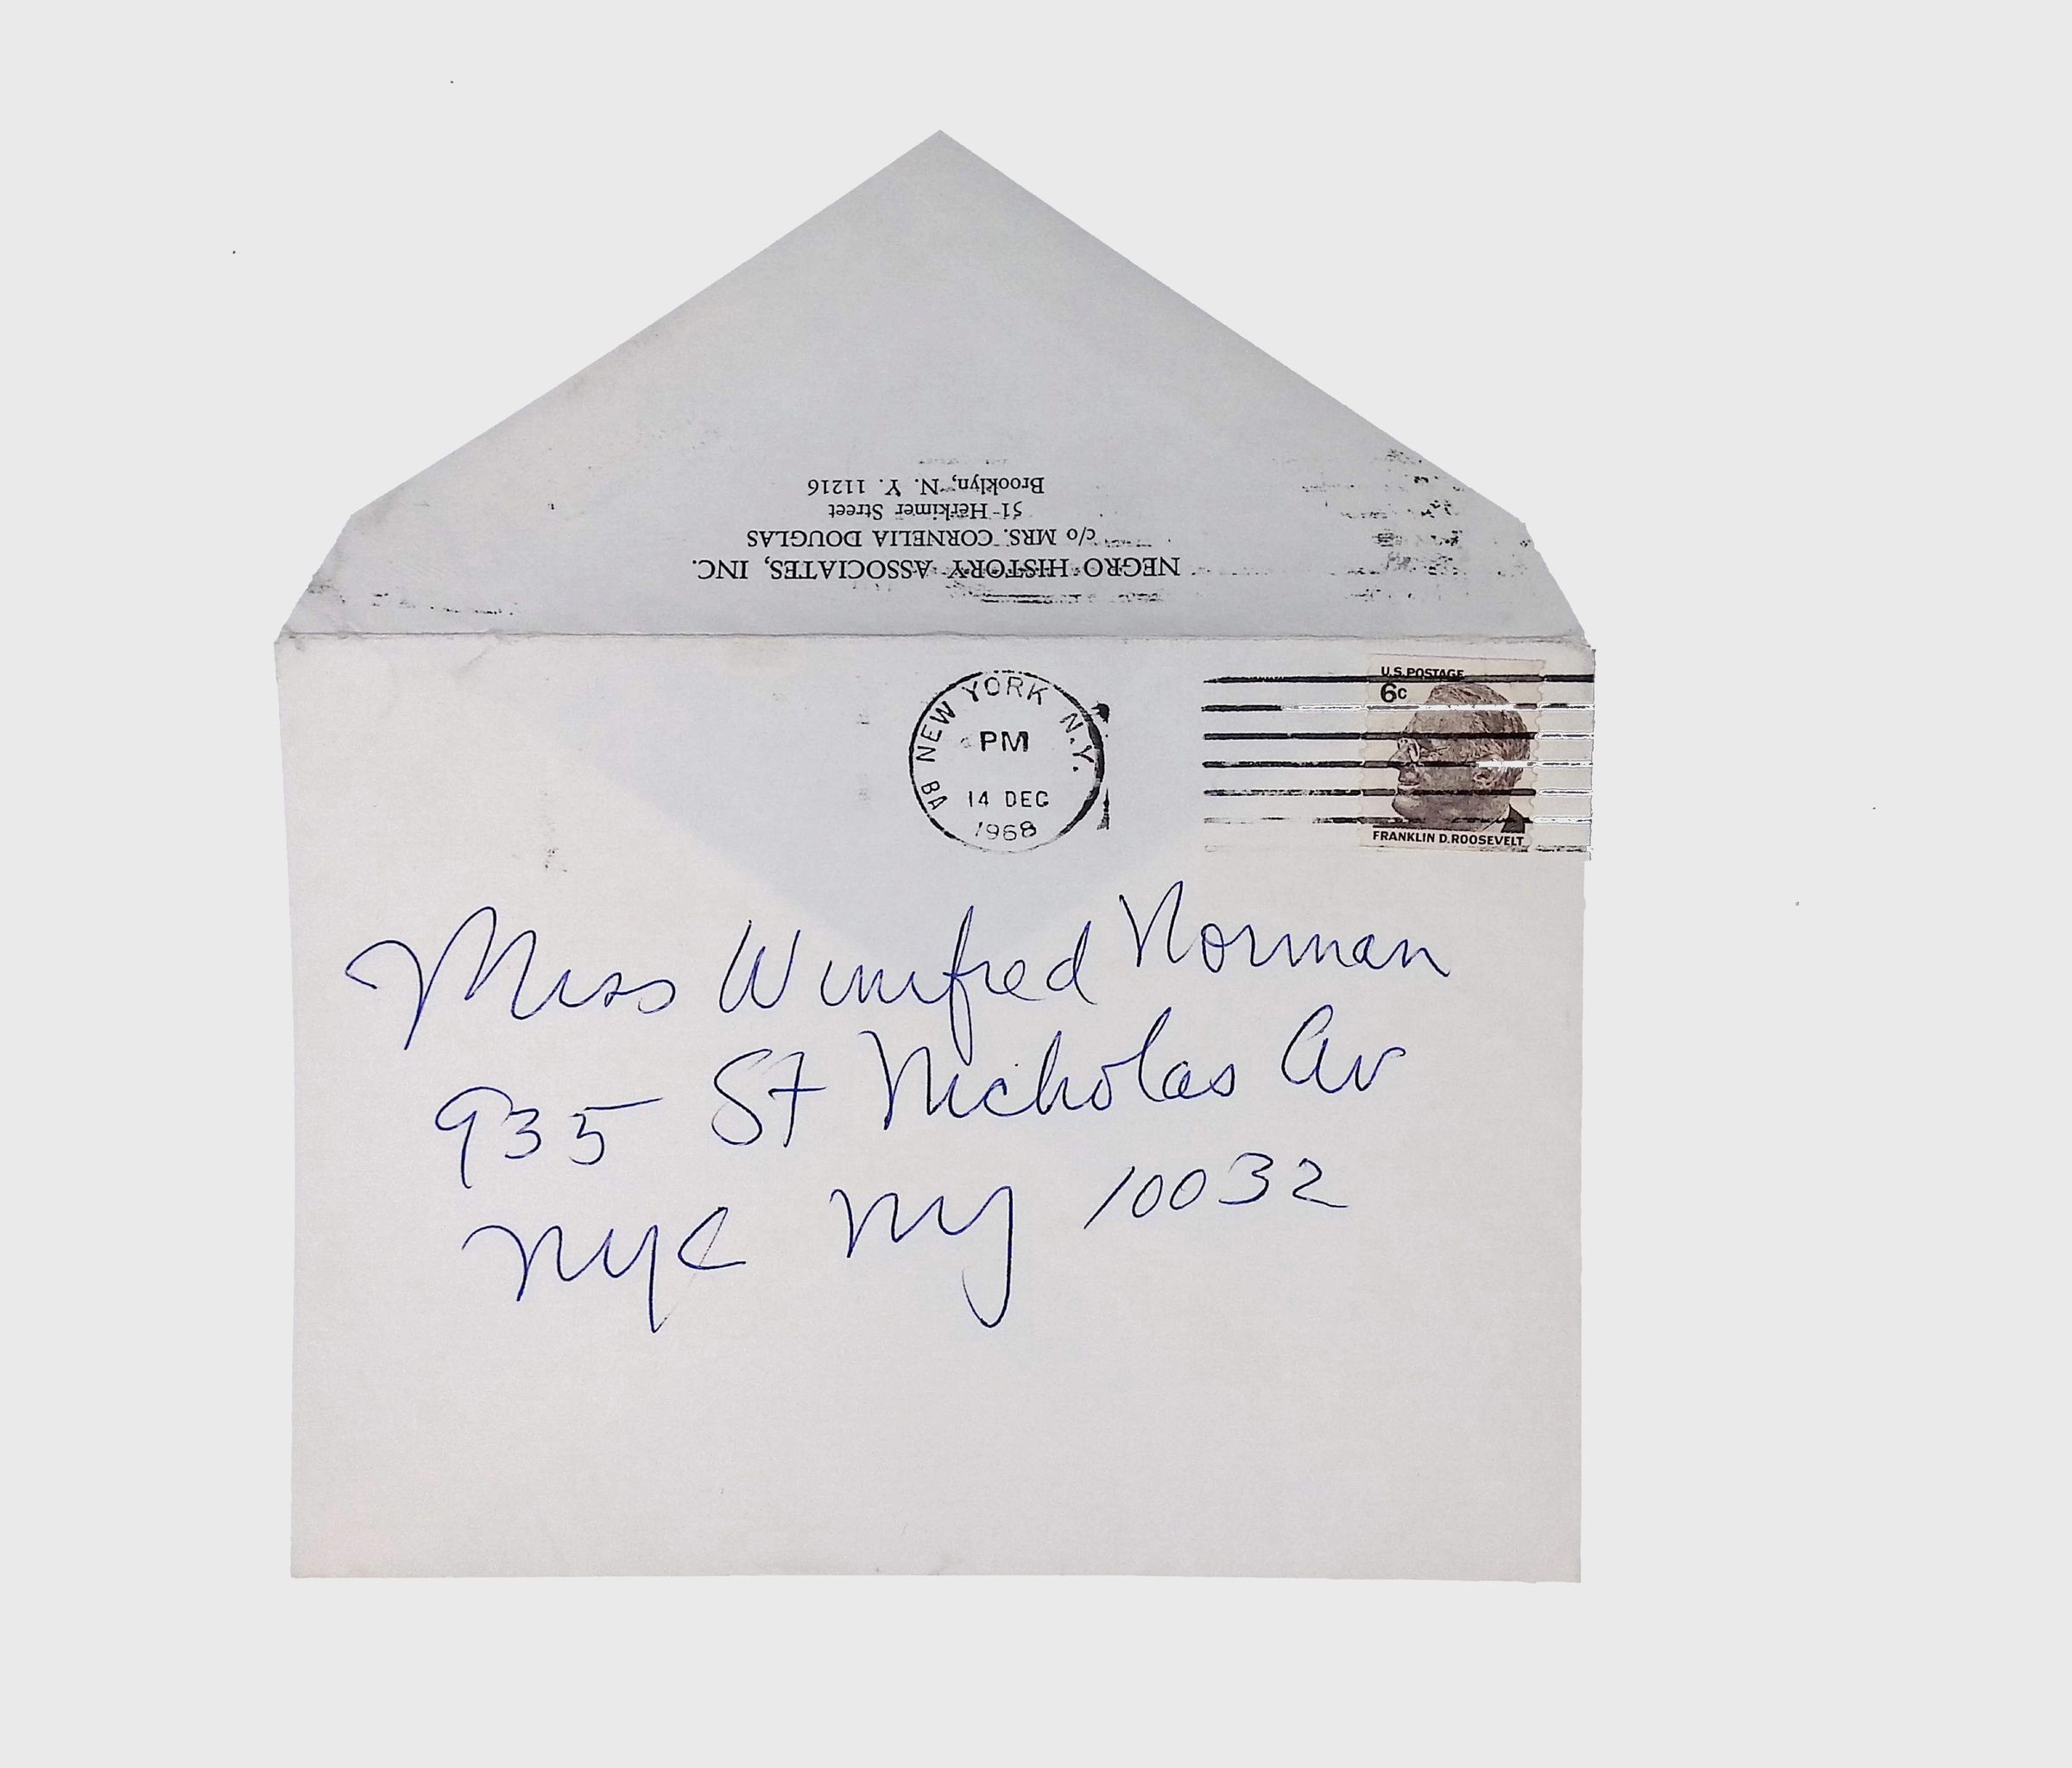 NEGRO HISTORY ASSOCIATES, INC.
c/o MRS. CORNELIA DOUGLAS
51 Herkimer Street
Brooklyn, N. Y. 11216
NEW YORK N.Y. BA
PM
14 DEC
1968
U.S. POSTAGE
6c
FRANKLIN D. ROOSEVELT
Miss Winifred Norman
935 St Nicholas Av
NYC NY 10032